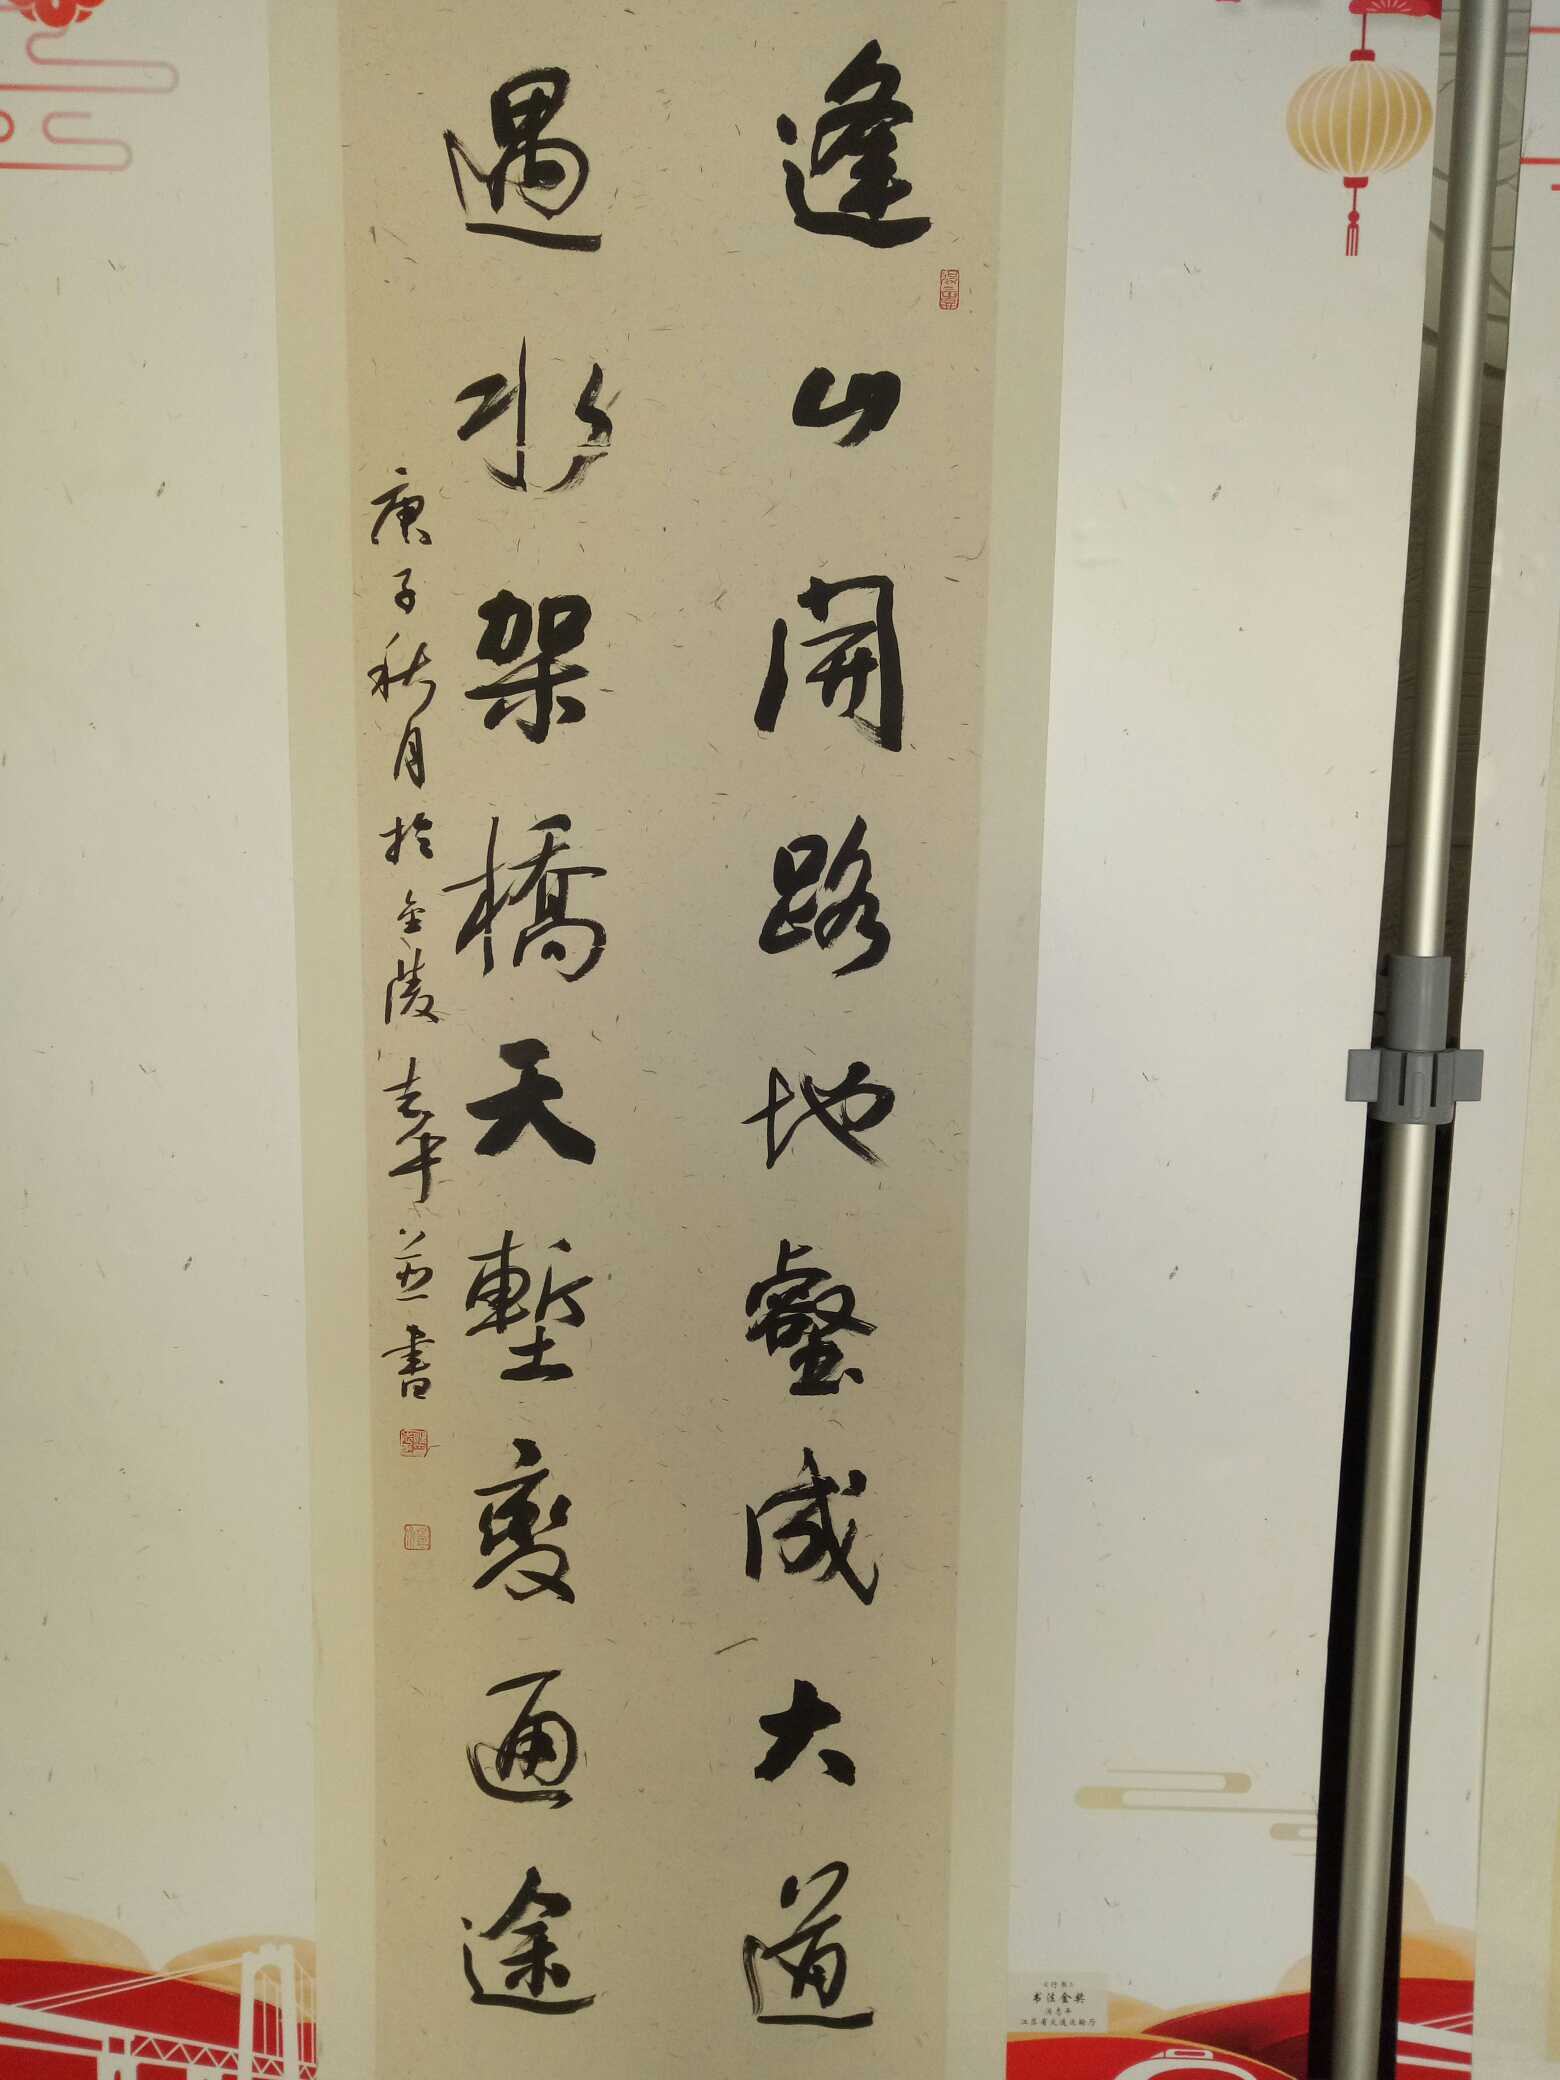 逢山開路地壑成大道
遇水架橋天塹變通途
庚子秋月於金陵志平並書
书法金奖
江苏省交通运输厅